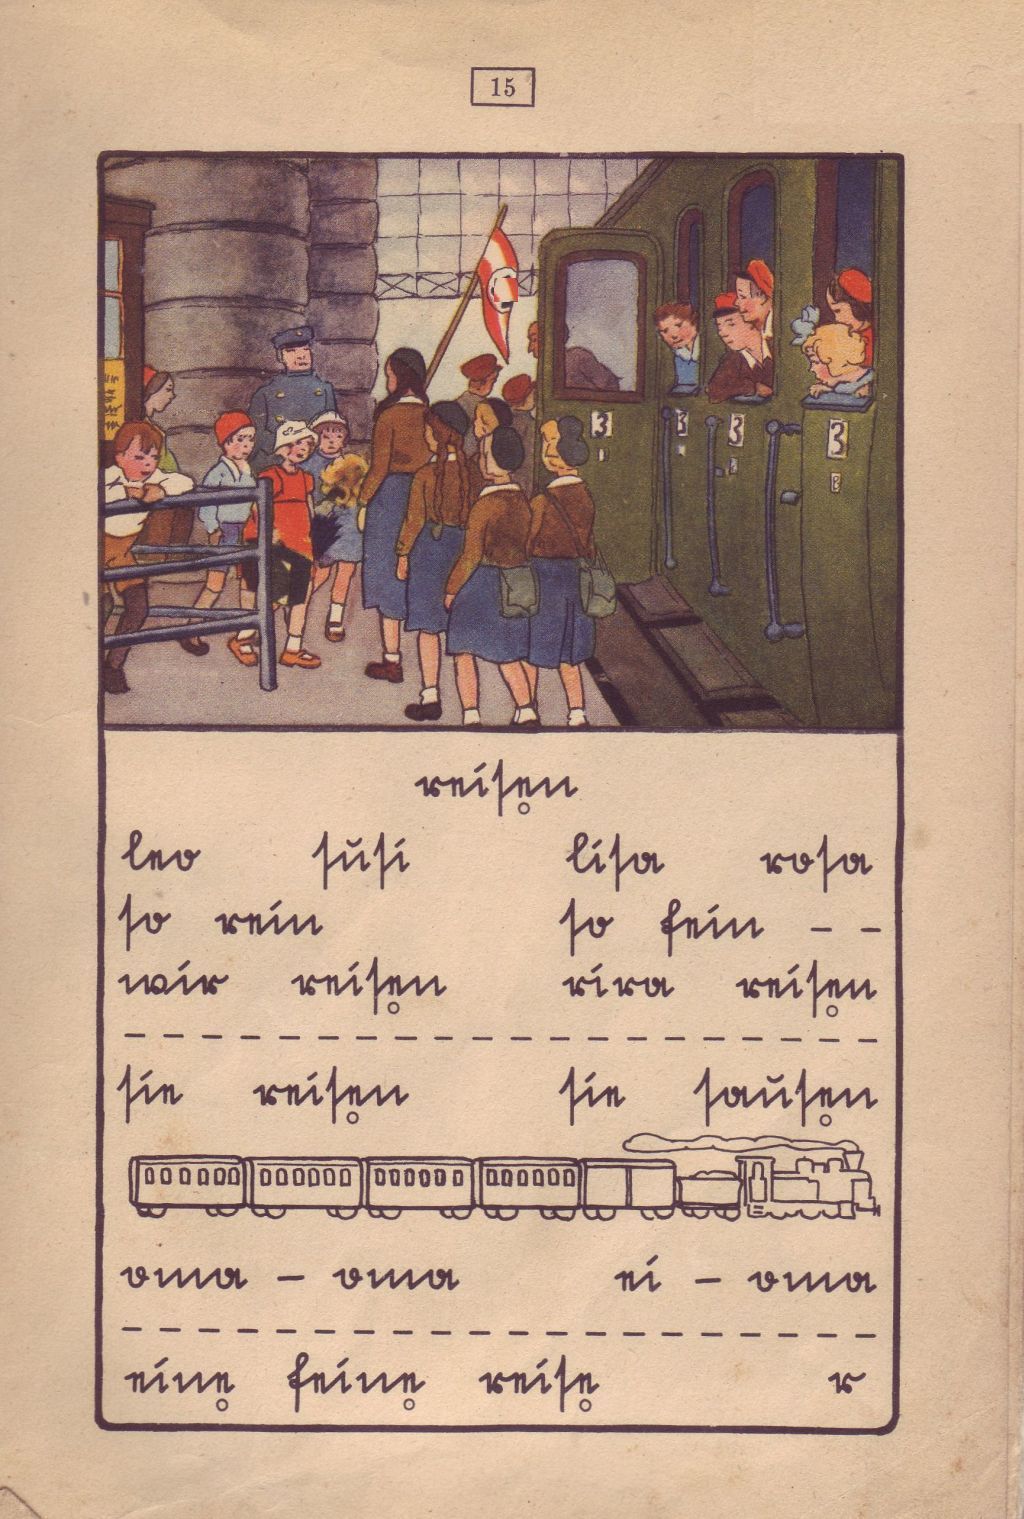 15
3 3 3 3
reisen
leo susi lisa rosa
so rein so fein - -
wir reisen rira reisen
sie reisen sie sausen
oma - oma ei - oma
eine feine reise r